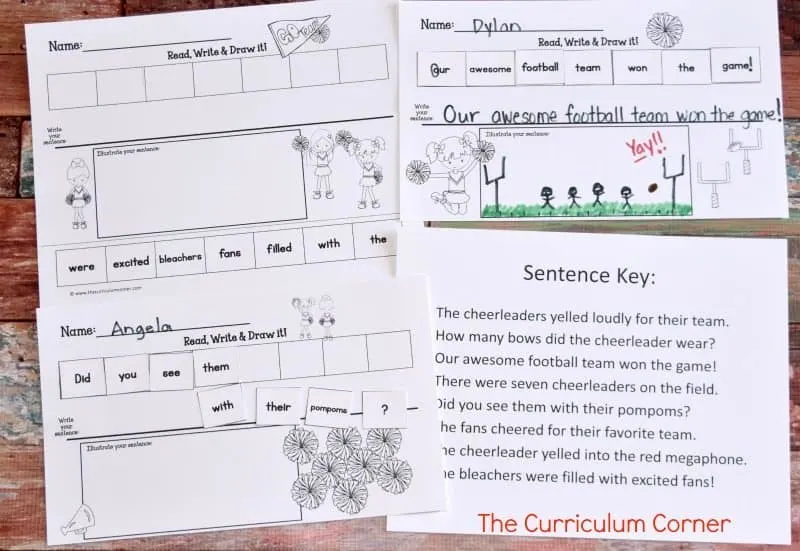 Name:
GO team!
Read, Write & Draw it!
Write your sentence:
Illustrate your sentence:
were excited bleachers fans filled with the
© www.thecurriculumcorner.com
Name: Dylan
Read, Write & Draw it!
Our awesome football team won the game!
Write your sentence:
Our awesome football team won the game!
Illustrate your sentence:
Yay!!
Name: Angela
Read, Write & Draw it!
Did you see them
with their pompoms ?
Write your sentence:
Illustrate your sentence:
Sentence Key:
The cheerleaders yelled loudly for their team.
How many bows did the cheerleader wear?
Our awesome football team won the game!
There were seven cheerleaders on the field.
Did you see them with their pompoms?
he fans cheered for their favorite team.
he cheerleader yelled into the red megaphone.
he bleachers were filled with excited fans!
The Curriculum Corner